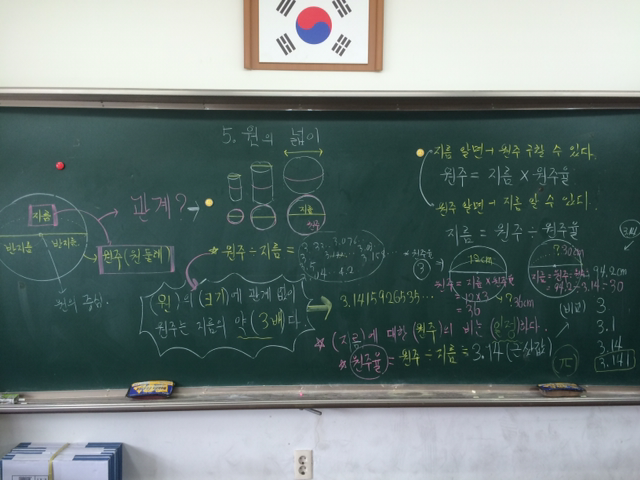 5. 원의 넓이
지름
반지름 반지름
원주(원 둘레)
원의 중심.
관계?
지름
원주
원주÷지름=
(원)의 (크기)에 관계 없이
원주는 지름의 약 (3배)다.
3.1415926535...
지름 알면→원주 구할 수 있다.
원주 = 지름 × 원주율
원주 알면→지름 알 수 있다.
지름 = 원주 ÷ 원주율
원주율
3
12cm
원주 = 지름×원주율
=12×3
=36
?36cm
?30cm
94.2cm
지름=원주÷원주율
=94.2÷3.14=30
(비교)
3
3.1
3.14
3.141
(지름)에 대한 (원주)의 비는 (일정)하다.
원주율 = 원주÷지름 = 3.14(근삿값)
π